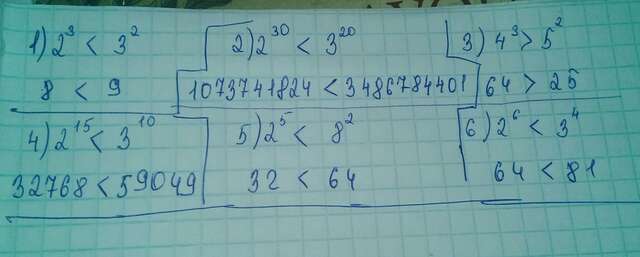 1) 2³ < 3²
8 < 9
2) 2³⁰ < 3²⁰
1073741824 < 3486784401
3) 4³ > 5²
64 > 25
4) 2¹⁵ < 3¹⁰
32768 < 59049
5) 2⁵ < 8²
32 < 64
6) 2⁶ < 3⁴
64 < 81